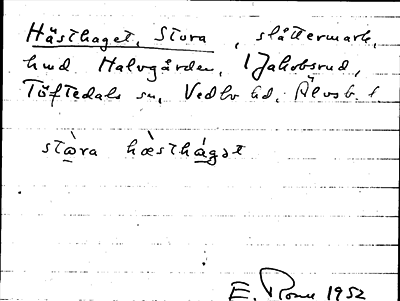 Hästhaget, Stora, slåttermark,
hmd Halvgården, 1 Jakobsrud,
Töftedals sn, Vedbo hd, Älvsb. l
stὼra hæ̀sthágət
E. 1952